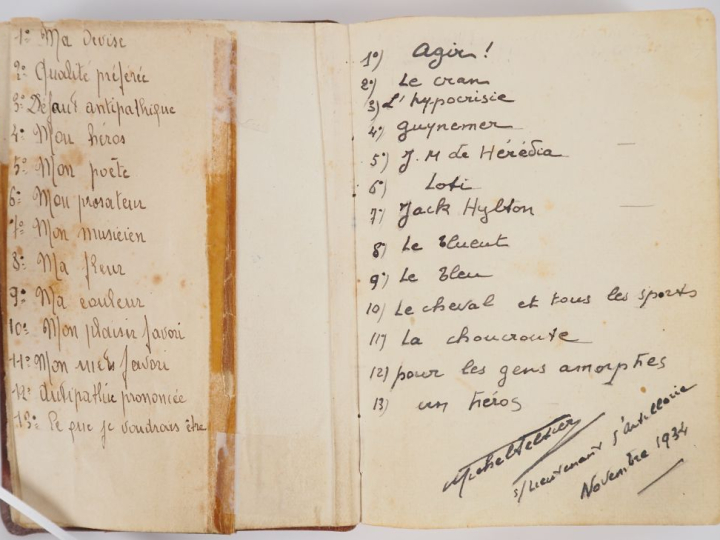 1º Ma devise
2º Qualité préférée
3º Défaut antipathique
4º Mon héros
5º Mon poête
6º Mon prosateur
7º Mon musicien
8º Ma fleur
9º Ma couleur
10º Mon plaisir favori
11º Mon mets favori
12º Antipathie prononcée
13º Ce que je voudrais être
1º) Agir !
2º) Le cran
3) L'hypocrisie
4º) Guynemer
5º) J. M de Hérédia
6º) Loti
7º) Jack Hylton
8) Le Bluent
9º) Le Bleu
10) Le cheval et tous les sports
11) La choucroute
12) pour les gens amorphes
13) un héros
Michel
s/Lieutenant d'artillerie
Novembre 1934